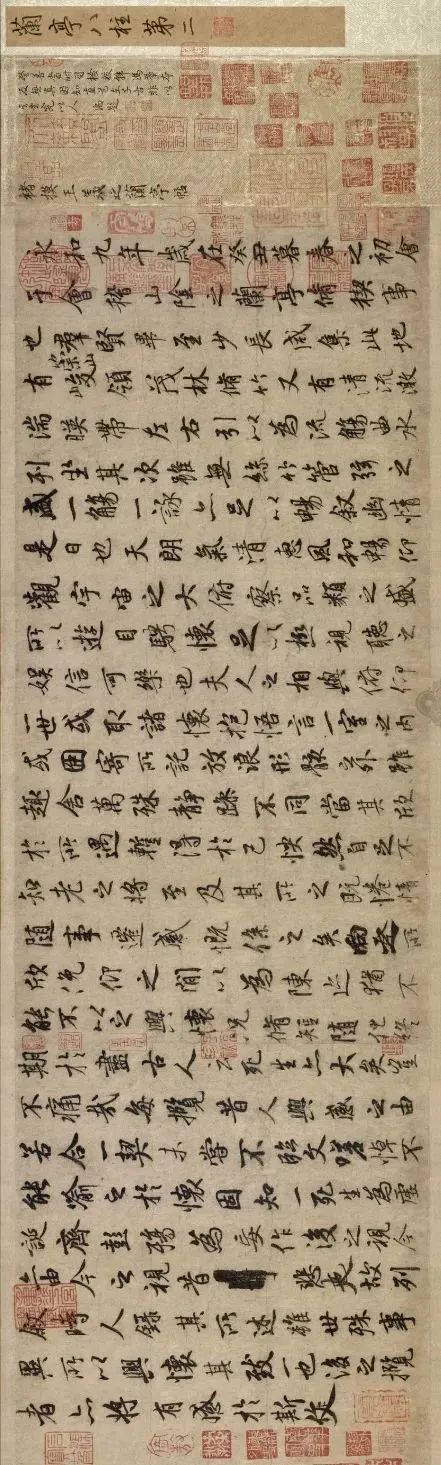 蘭亭八柱第二
褚摸王羲之蘭亭帖
永和九年歲在癸丑暮春之初會
于會稽山陰之蘭亭脩稧事
也羣賢畢至少長咸集此地
有崇山峻領茂林脩竹又有清流激
湍暎帶左右引以為流觴曲水
列坐其次雖無絲竹管弦之
盛一觴一詠亦足以暢叙幽情
是日也天朗氣清惠風和暢仰
觀宇宙之大俯察品類之盛
所以遊目騁懷足以極視聽之
娛信可樂也夫人之相與俯仰
一世或取諸懷抱悟言一室之內
或因寄所託放浪形骸之外雖
趣舍萬殊靜躁不同當其欣
於所遇暫得於己怏然自足不
知老之將至及其所之既惓情
隨事遷感慨係之矣向之所
欣俛仰之閒以為陳迹猶不
能不以之興懷況脩短隨化終
期於盡古人云死生亦大矣豈
不痛哉每攬昔人興感之由
若合一契未嘗不臨文嗟悼不
能喻之於懷固知一死生為虛
誕齊彭殤為妄作後之視今
亦由今之視昔悲夫故列
敘時人錄其所述雖世殊事
異所以興懷其致一也後之攬
者亦將有感於斯文